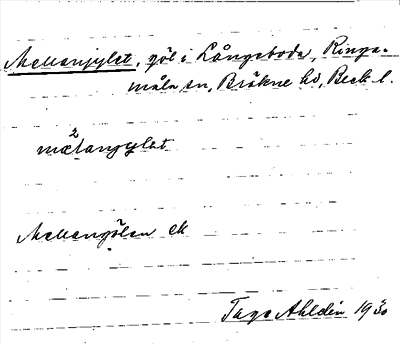 Mellanjylet, göl i Långeboda, Ringa-
måla sn, Bräkne hd, Blek. l.
Mellangölen ek
Tage Ahldén 1930